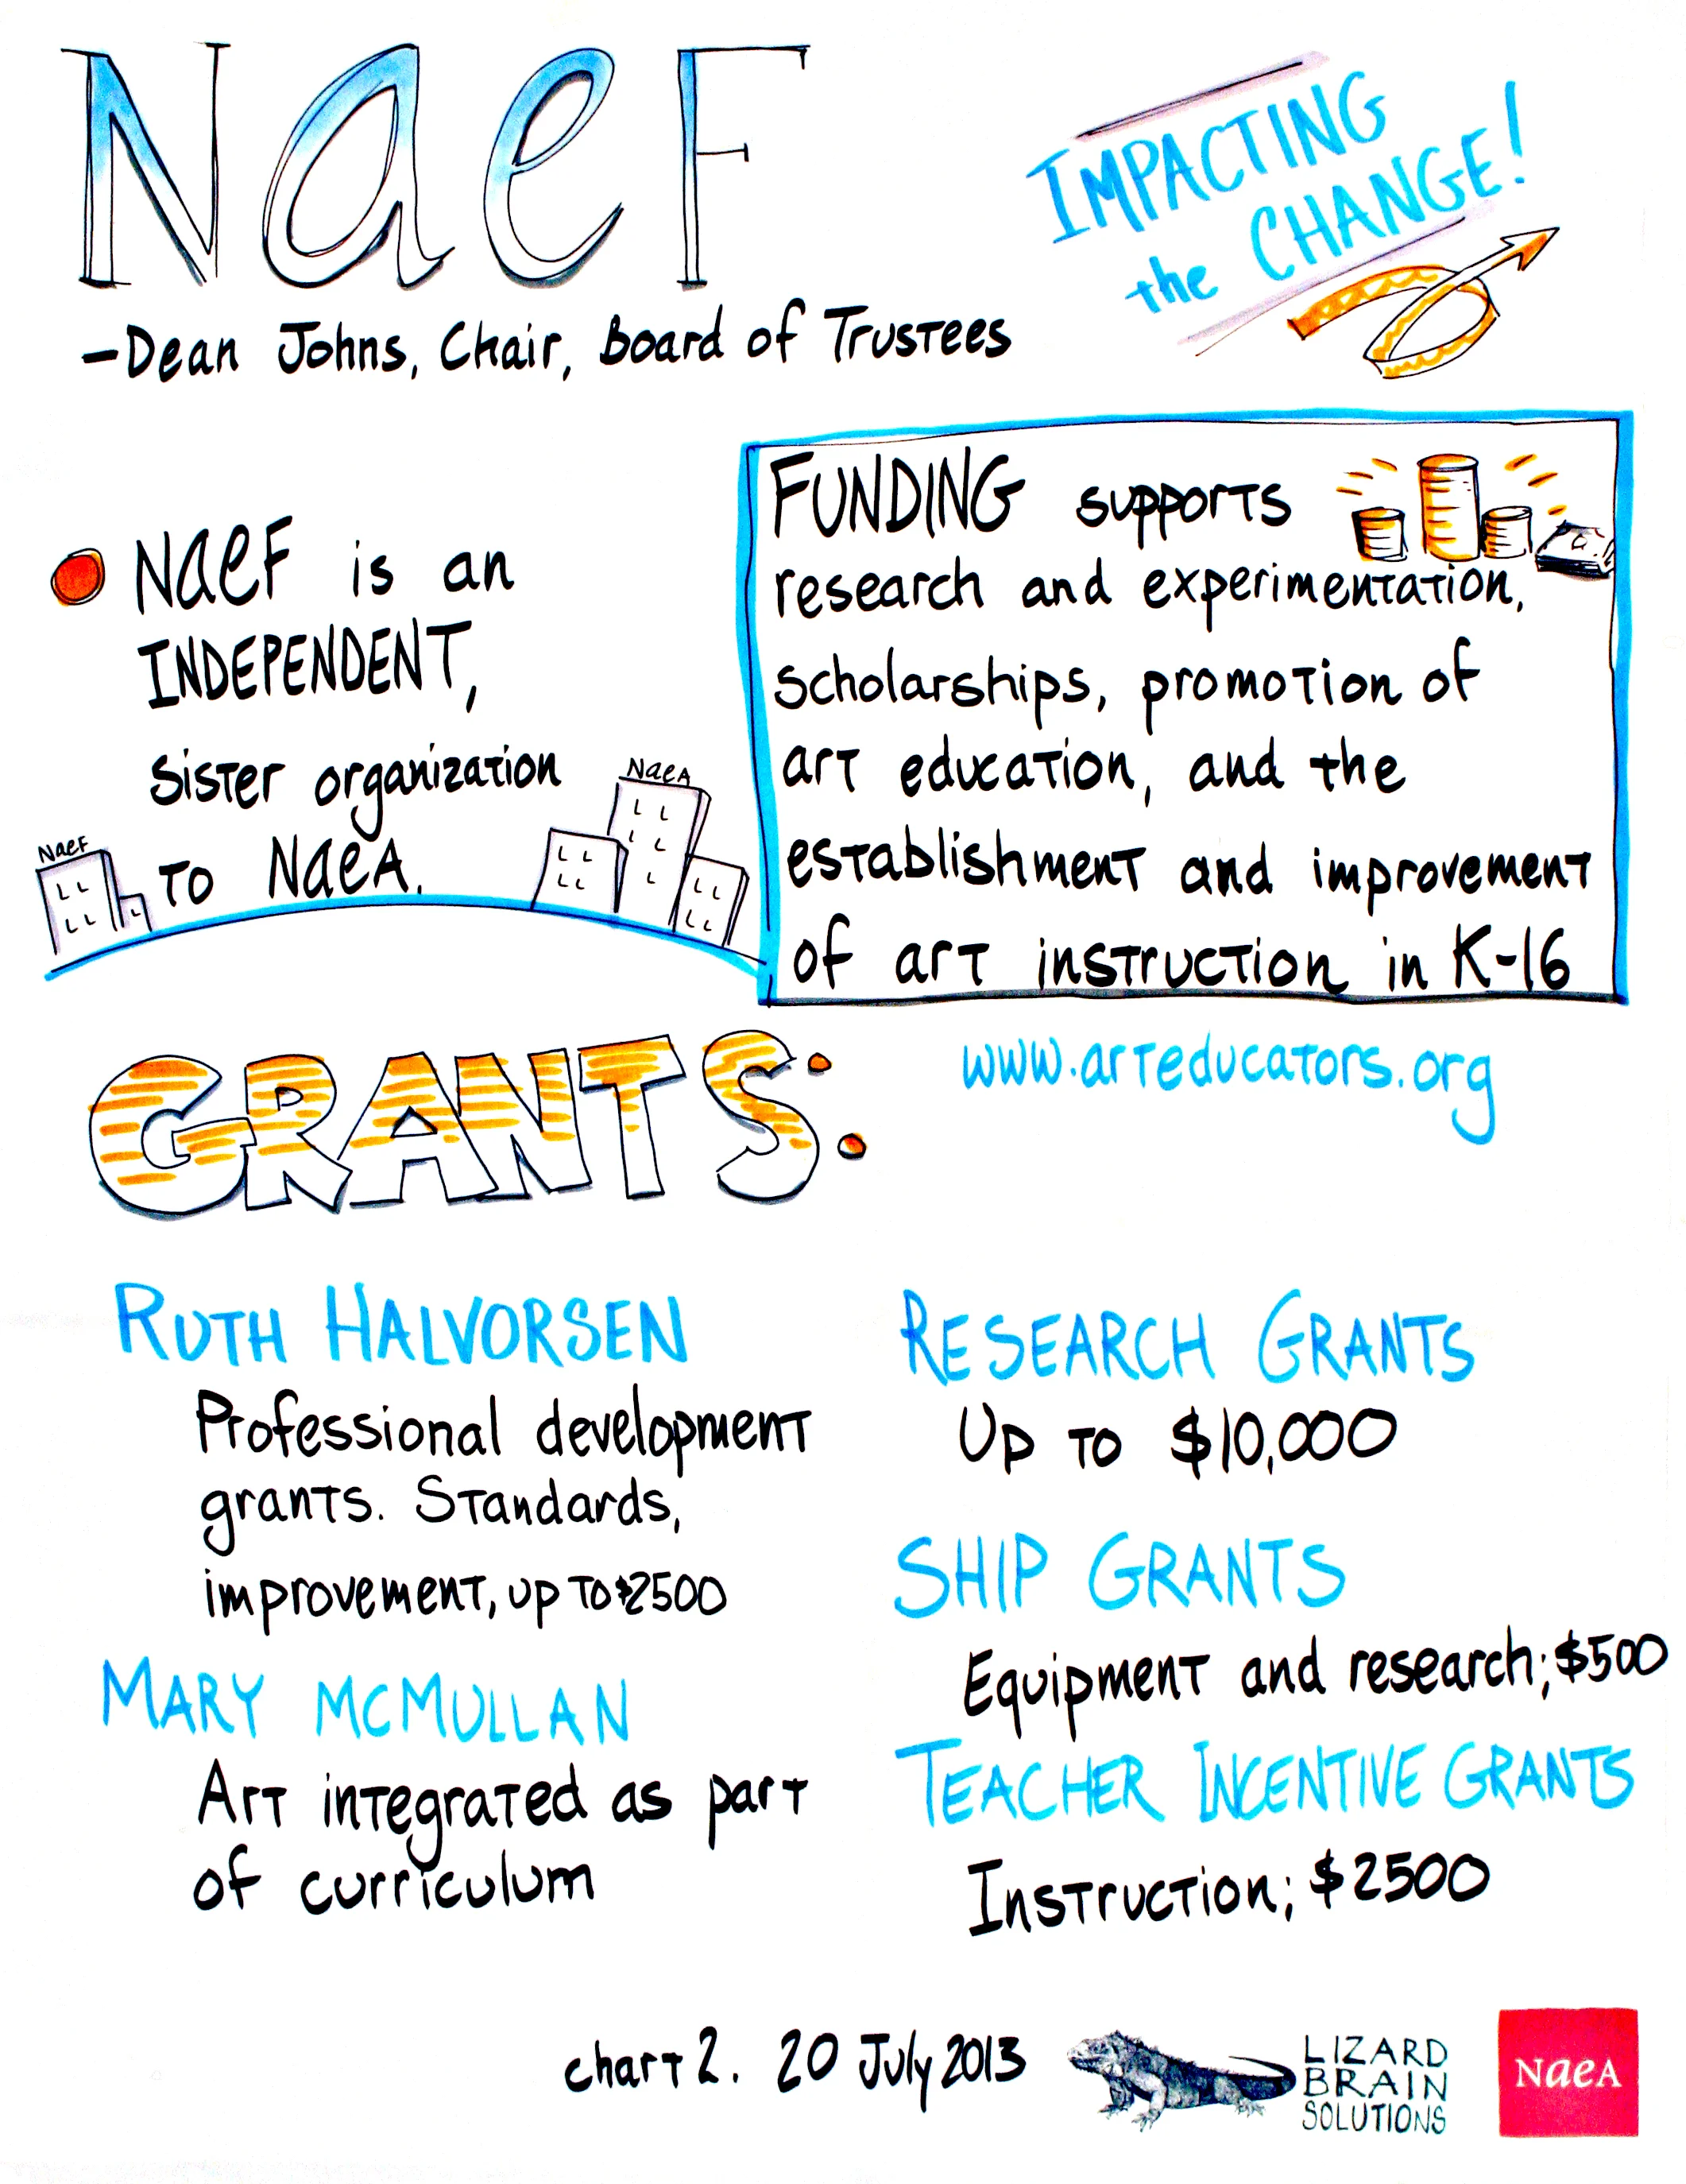 NaeF
IMPACTING
the CHANGE!
–Dean Johns, Chair, Board of Trustees
NaeF is an
INDEPENDENT,
sister organization
to NaeA.
NaeF
NaeA
FUNDING supports
research and experimentation,
scholarships, promotion of
art education, and the
establishment and improvement
of art instruction in K-16
www.arteducators.org
GRANTS:
RUTH HALVORSEN
Professional development
grants. Standards,
improvement, up to $2500
MARY MCMULLAN
Art integrated as part
of curriculum
RESEARCH GRANTS
Up to $10,000
SHIP GRANTS
Equipment and research; $500
TEACHER INCENTIVE GRANTS
Instruction; $2500
chart 2. 20 July 2013
LIZARD
BRAIN
SOLUTIONS
NaeA